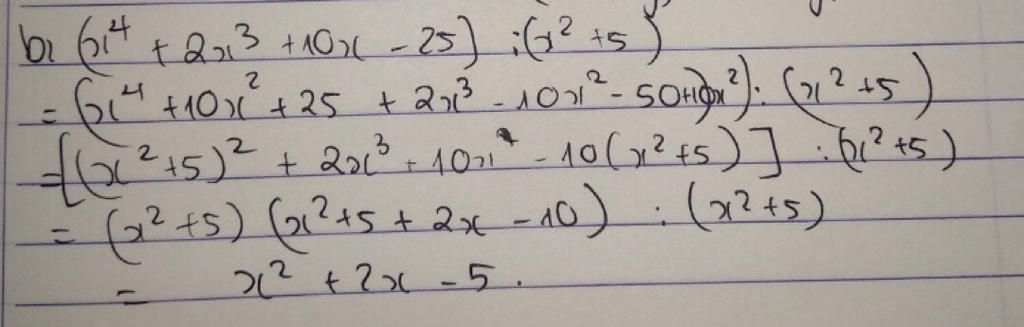 b, (x⁴ + 2x³ + 10x - 25) : (x² + 5)
= (x⁴ + 10x² + 25 + 2x³ - 10x² - 50 + 10x) : (x² + 5)
= [(x² + 5)² + 2x³ + 10x - 10(x² + 5)] : (x² + 5)
= (x² + 5) (x² + 5 + 2x - 10) : (x² + 5)
= x² + 2x - 5.